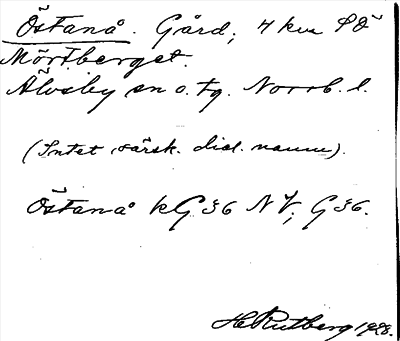 Östanå. Gård, 4 km SÖ
Mörtberget.
Älvsby sn o. tg. Norrb. l.
(Intet särsk. dial. namn).
Östanå kG 36 NV; G 36.
H Rutberg 1928.